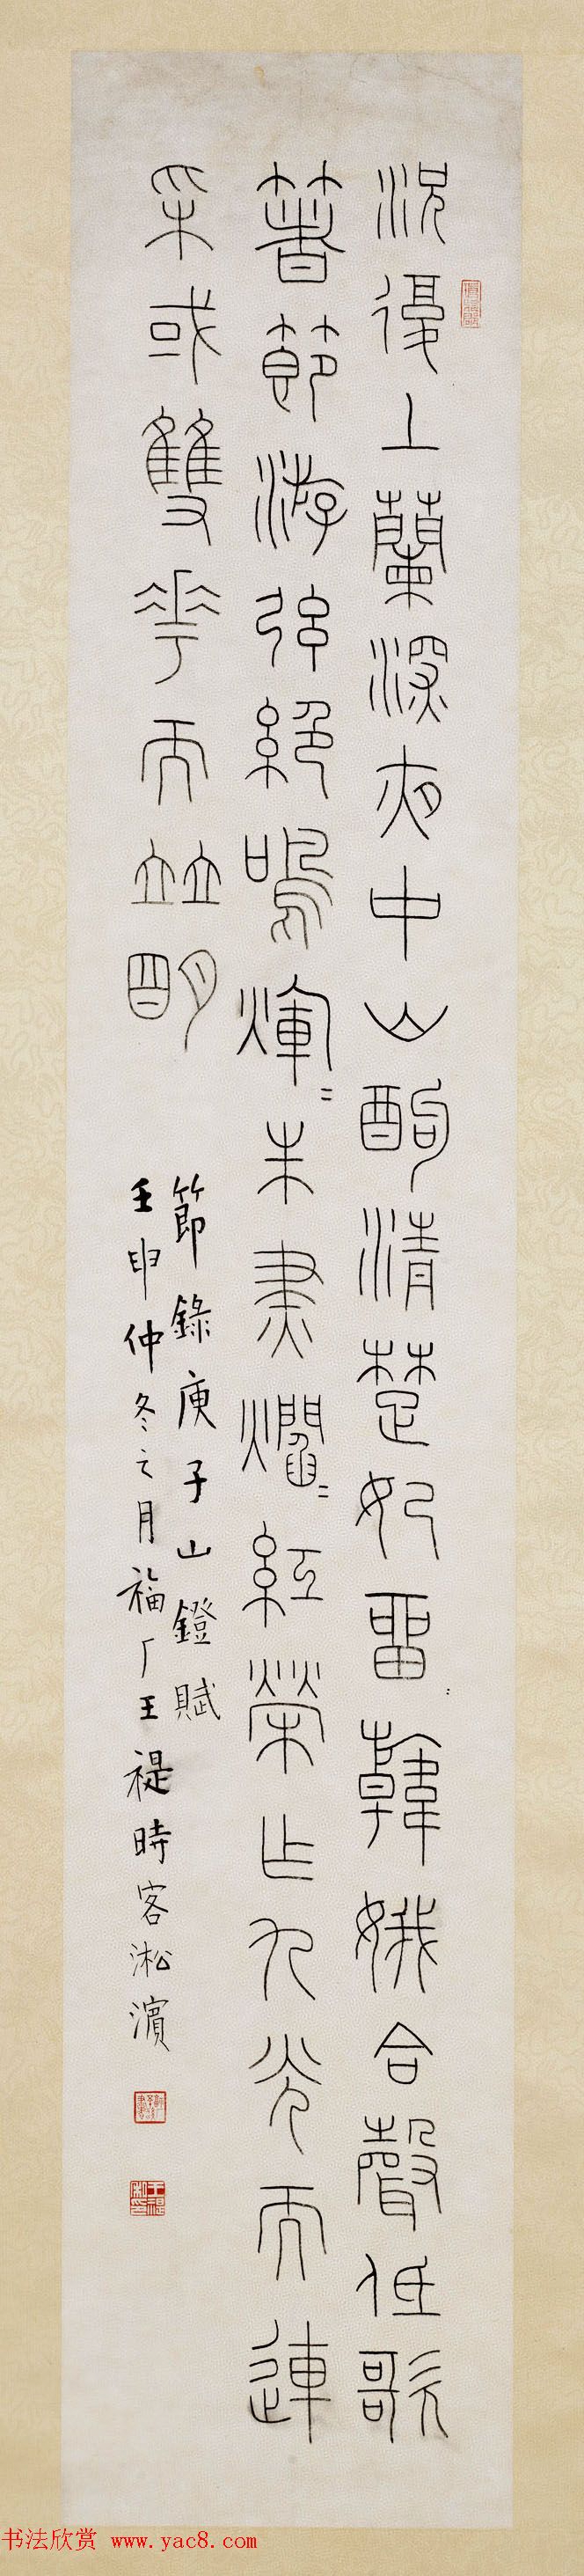 況復上蘭深夜中山酌清楚妃留韓娥合聲低歌
著節游弦絕鳴煇〻朱燼爛〻紅榮乍九光而連
采或雙花而竝明
節錄庾子山鐙賦
壬申仲冬之月福厂王禔時客淞濱
书法欣赏 www.yac8.com